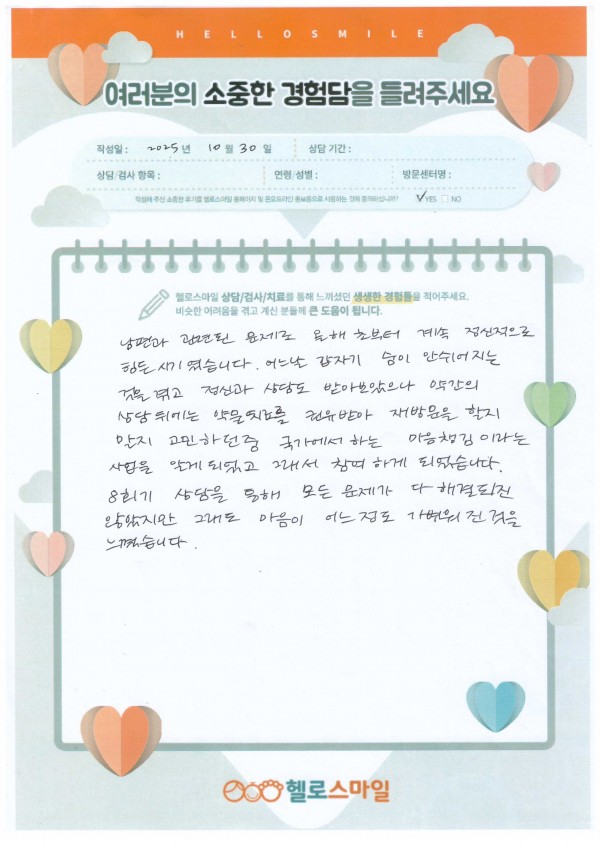 HELLOSMILE
여러분의 소중한 경험담을 들려주세요
작성일 : 2025년 10월 30일 상담 기간 :
상담/검사 항목 : 연령/성별 : 방문센터명 :
작성해 주신 소중한 후기를 헬로스마일 홈페이지 및 온오프라인 홍보용으로 사용하는 것에 동의하십니까? ✓YES □ NO
헬로스마일 상담/검사/치료를 통해 느끼셨던 생생한 경험들을 적어주세요.
비슷한 어려움을 겪고 계신 분들께 큰 도움이 됩니다.
남편과 관련된 문제로 올해 초부터 계속 정신적으로
힘든 시기 였습니다. 어느날 갑자기 숨이 안쉬어지는
것을 겪고 정신과 상담도 받아보았으나 약간의
상담 뒤에는 약물치료를 권유받아 재방문을 할지
말지 고민하던중 국가에서 하는 마음챙김 이라는
사업을 알게 되었고 그래서 참여 하게 되었습니다.
8회기 상담을 통해 모든 문제가 다 해결되진
않았지만 그래도 마음이 어느 정도 가벼워 진 것을
느꼈습니다.
헬로스마일